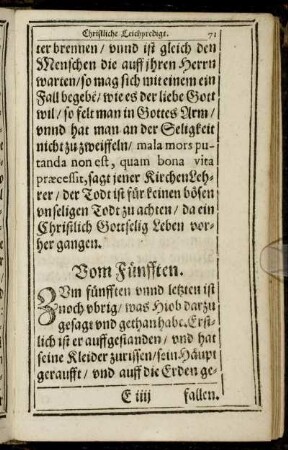 Christliche Leichpredigt. 71
ter brennen / vnnd ist gleich den
Menschen die auff jhren Herrn
warten / so mag sich mit einem ein
Fall begebē / wie es der liebe Gott
wil / so felt man in Gottes Arm /
vnnd hat man an der Seligkeit
nicht zu zweiffeln / mala mors pu-
tanda non est, quam bona vita
præcessit, sagt jener KirchenLeh-
rer / der Todt ist für keinen bösen
vnseligen Todt zu achten / da ein
Christlich Gottselig Leben vor-
her gangen.
Vom Fünfften.
ZVm fünfften vnnd letzten ist
noch vbrig / was Hiob darzu
gesagt vnd gethan habe. Erst-
lich ist er auffgestanden / vnd hat
seine Kleider zurissen / sein Häupt
geraufft / vnd auff die Erden ge-
E iiij fallen.